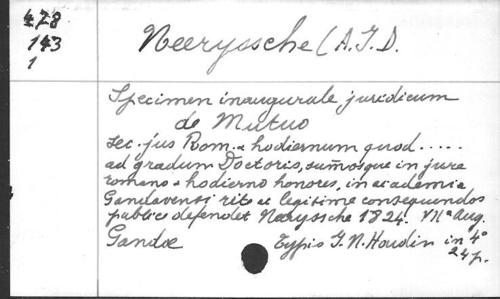 478
143
1
Neeryssche (A.J.D.
Specimen inaugurale juridicum
de Mutuo
sec. jus Rom. & hodiernum quod .....
ad gradum Doctoris, sum̄osque in jure
romano & hodierno honores, in academia
Gandavensi rite ac legitime consequendos
publice defendet Neeryssche 1824. VIIa Aug.
Gandæ Typis J.N. Houdin in 4°
24p.